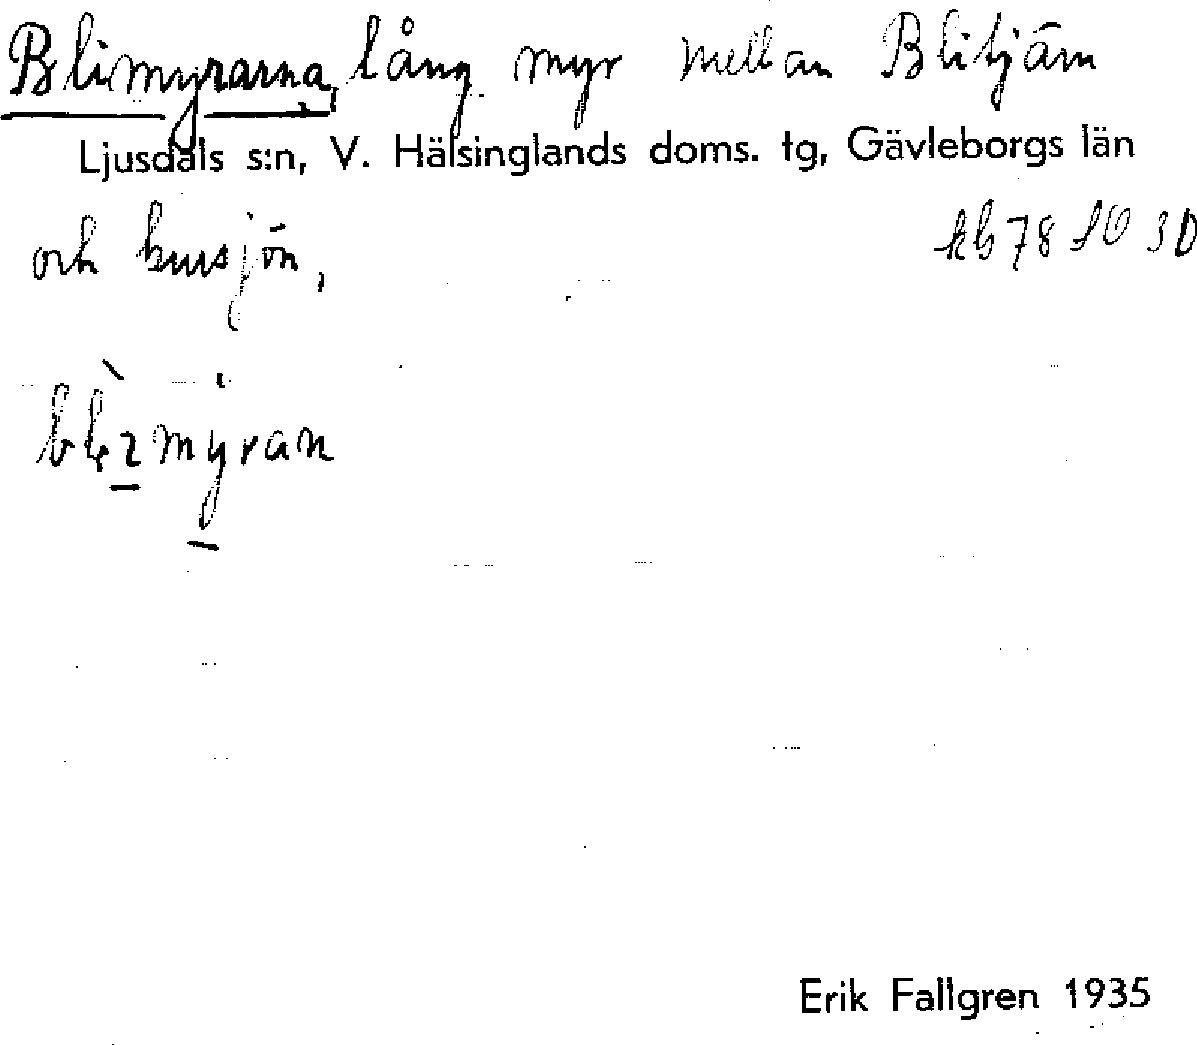 Blimyrarna, lång myr mellan Blitjärn
Ljusdals s:n, V. Hälsinglands doms. tg, Gävleborgs län
och kursjön, kb 78 10 30
myran
Erik Fallgren 1935